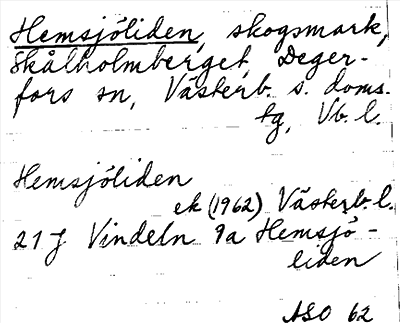 Hemsjöliden, skogsmark,
Skålholmberget, Deger-
fors sn, Västerb. s. doms.
tg, Vb. l.
Hemsjöliden
ek (1962) Västerb. l.
21 J Vindeln 9a Hemsjö-
liden
ASO 62